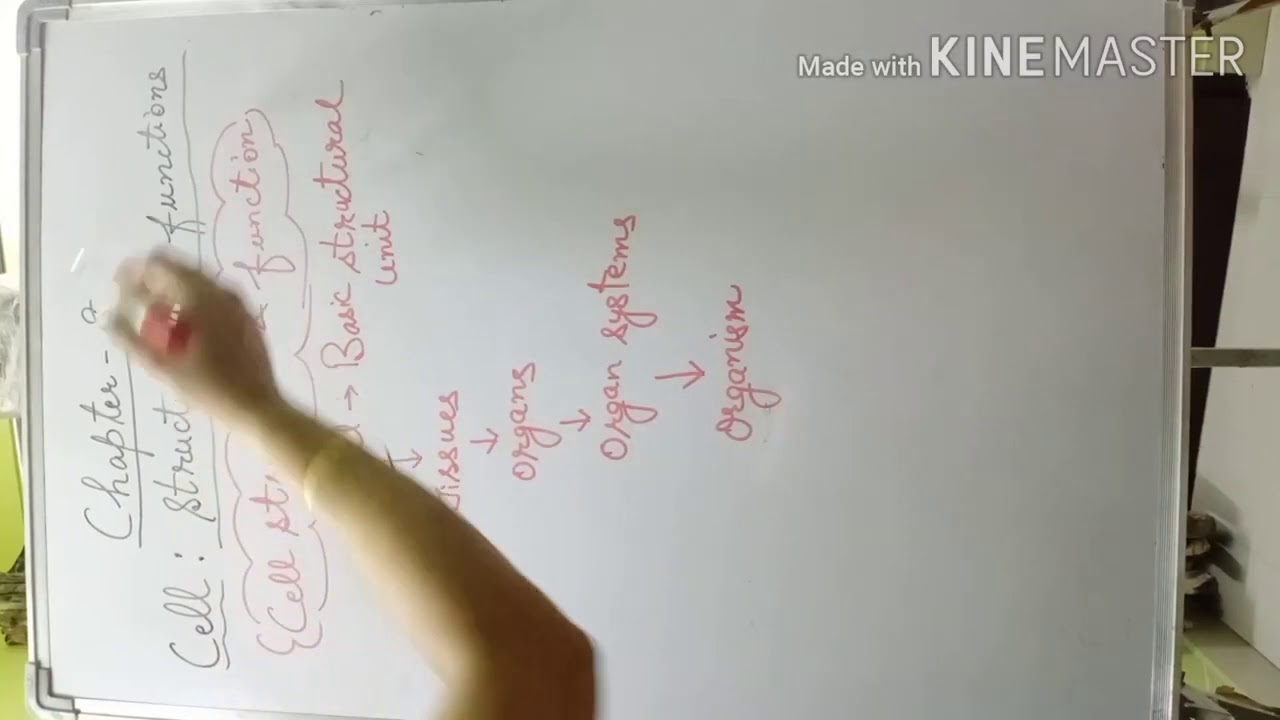 Made with KINEMASTER
Chapter -
Cell : functions
Cell function
→ Basic structural
unit
↓
↓
Organs
↓
Organ systems
↓
Organism